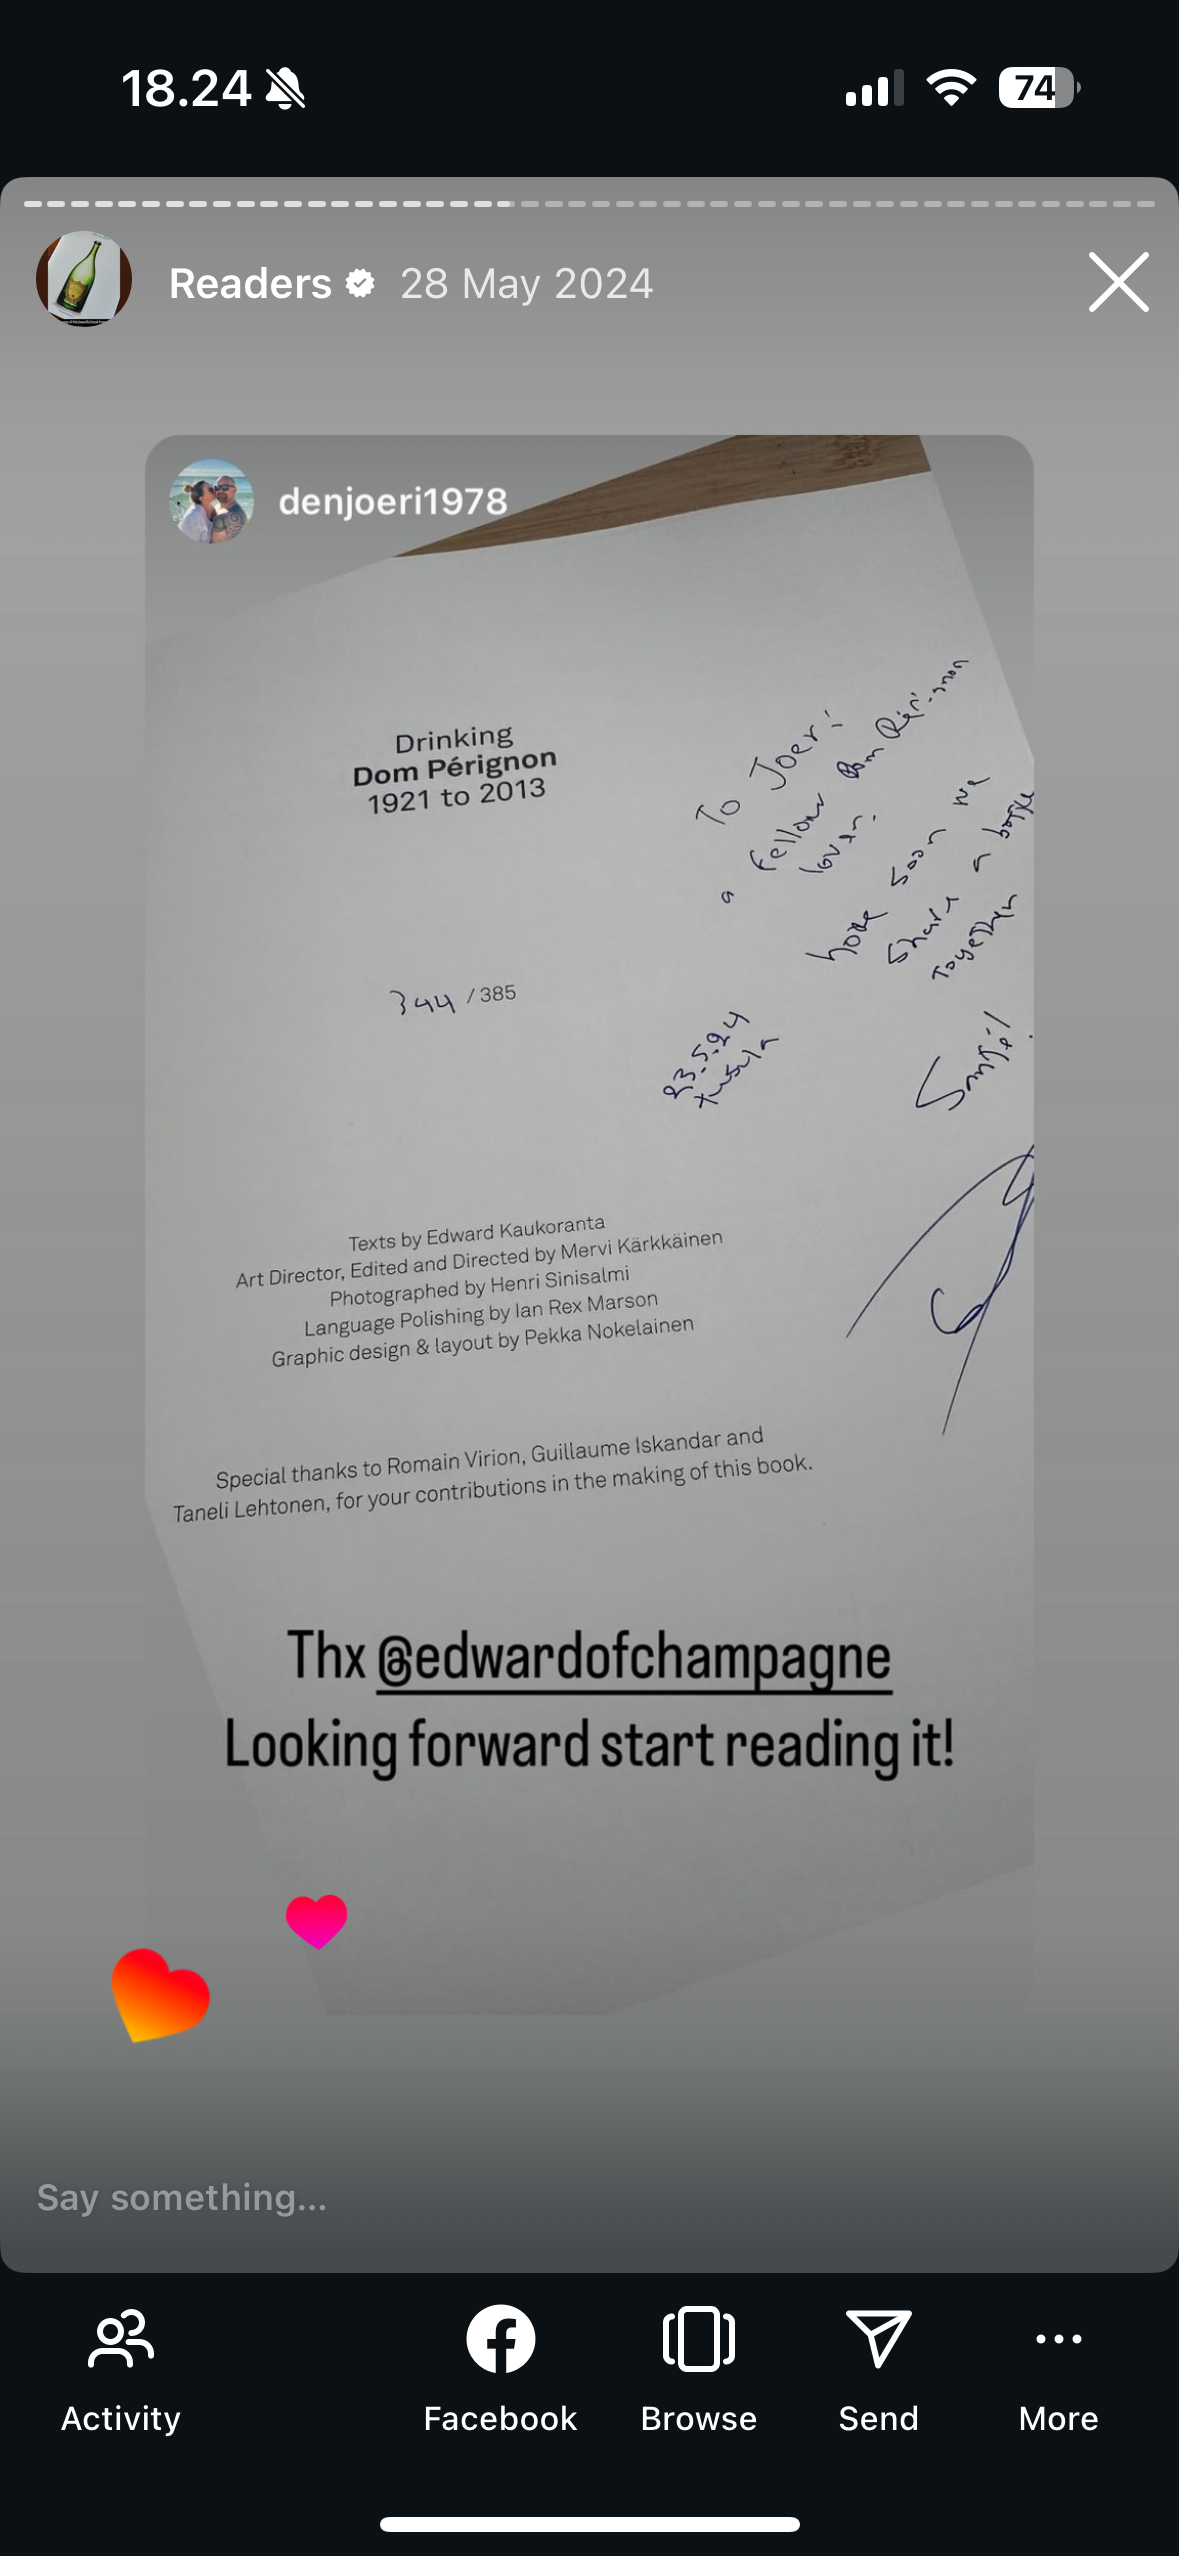 18.24
74
Readers 28 May 2024
denjoeri1978
Drinking
Dom Pérignon
1921 to 2013
To Joeri
a fellow Dom Pérignon
lover.
hope soon we
share a bottle
together
344 /385
23.5.24
Tuusula
Texts by Edward Kaukoranta
Art Director, Edited and Directed by Mervi Kärkkäinen
Photographed by Henri Sinisalmi
Language Polishing by Ian Rex Marson
Graphic design & layout by Pekka Nokelainen
Special thanks to Romain Virion, Guillaume Iskandar and
Taneli Lehtonen, for your contributions in the making of this book.
Thx @edwardofchampagne
Looking forward start reading it!
Say something...
Activity
Facebook
Browse
Send
More